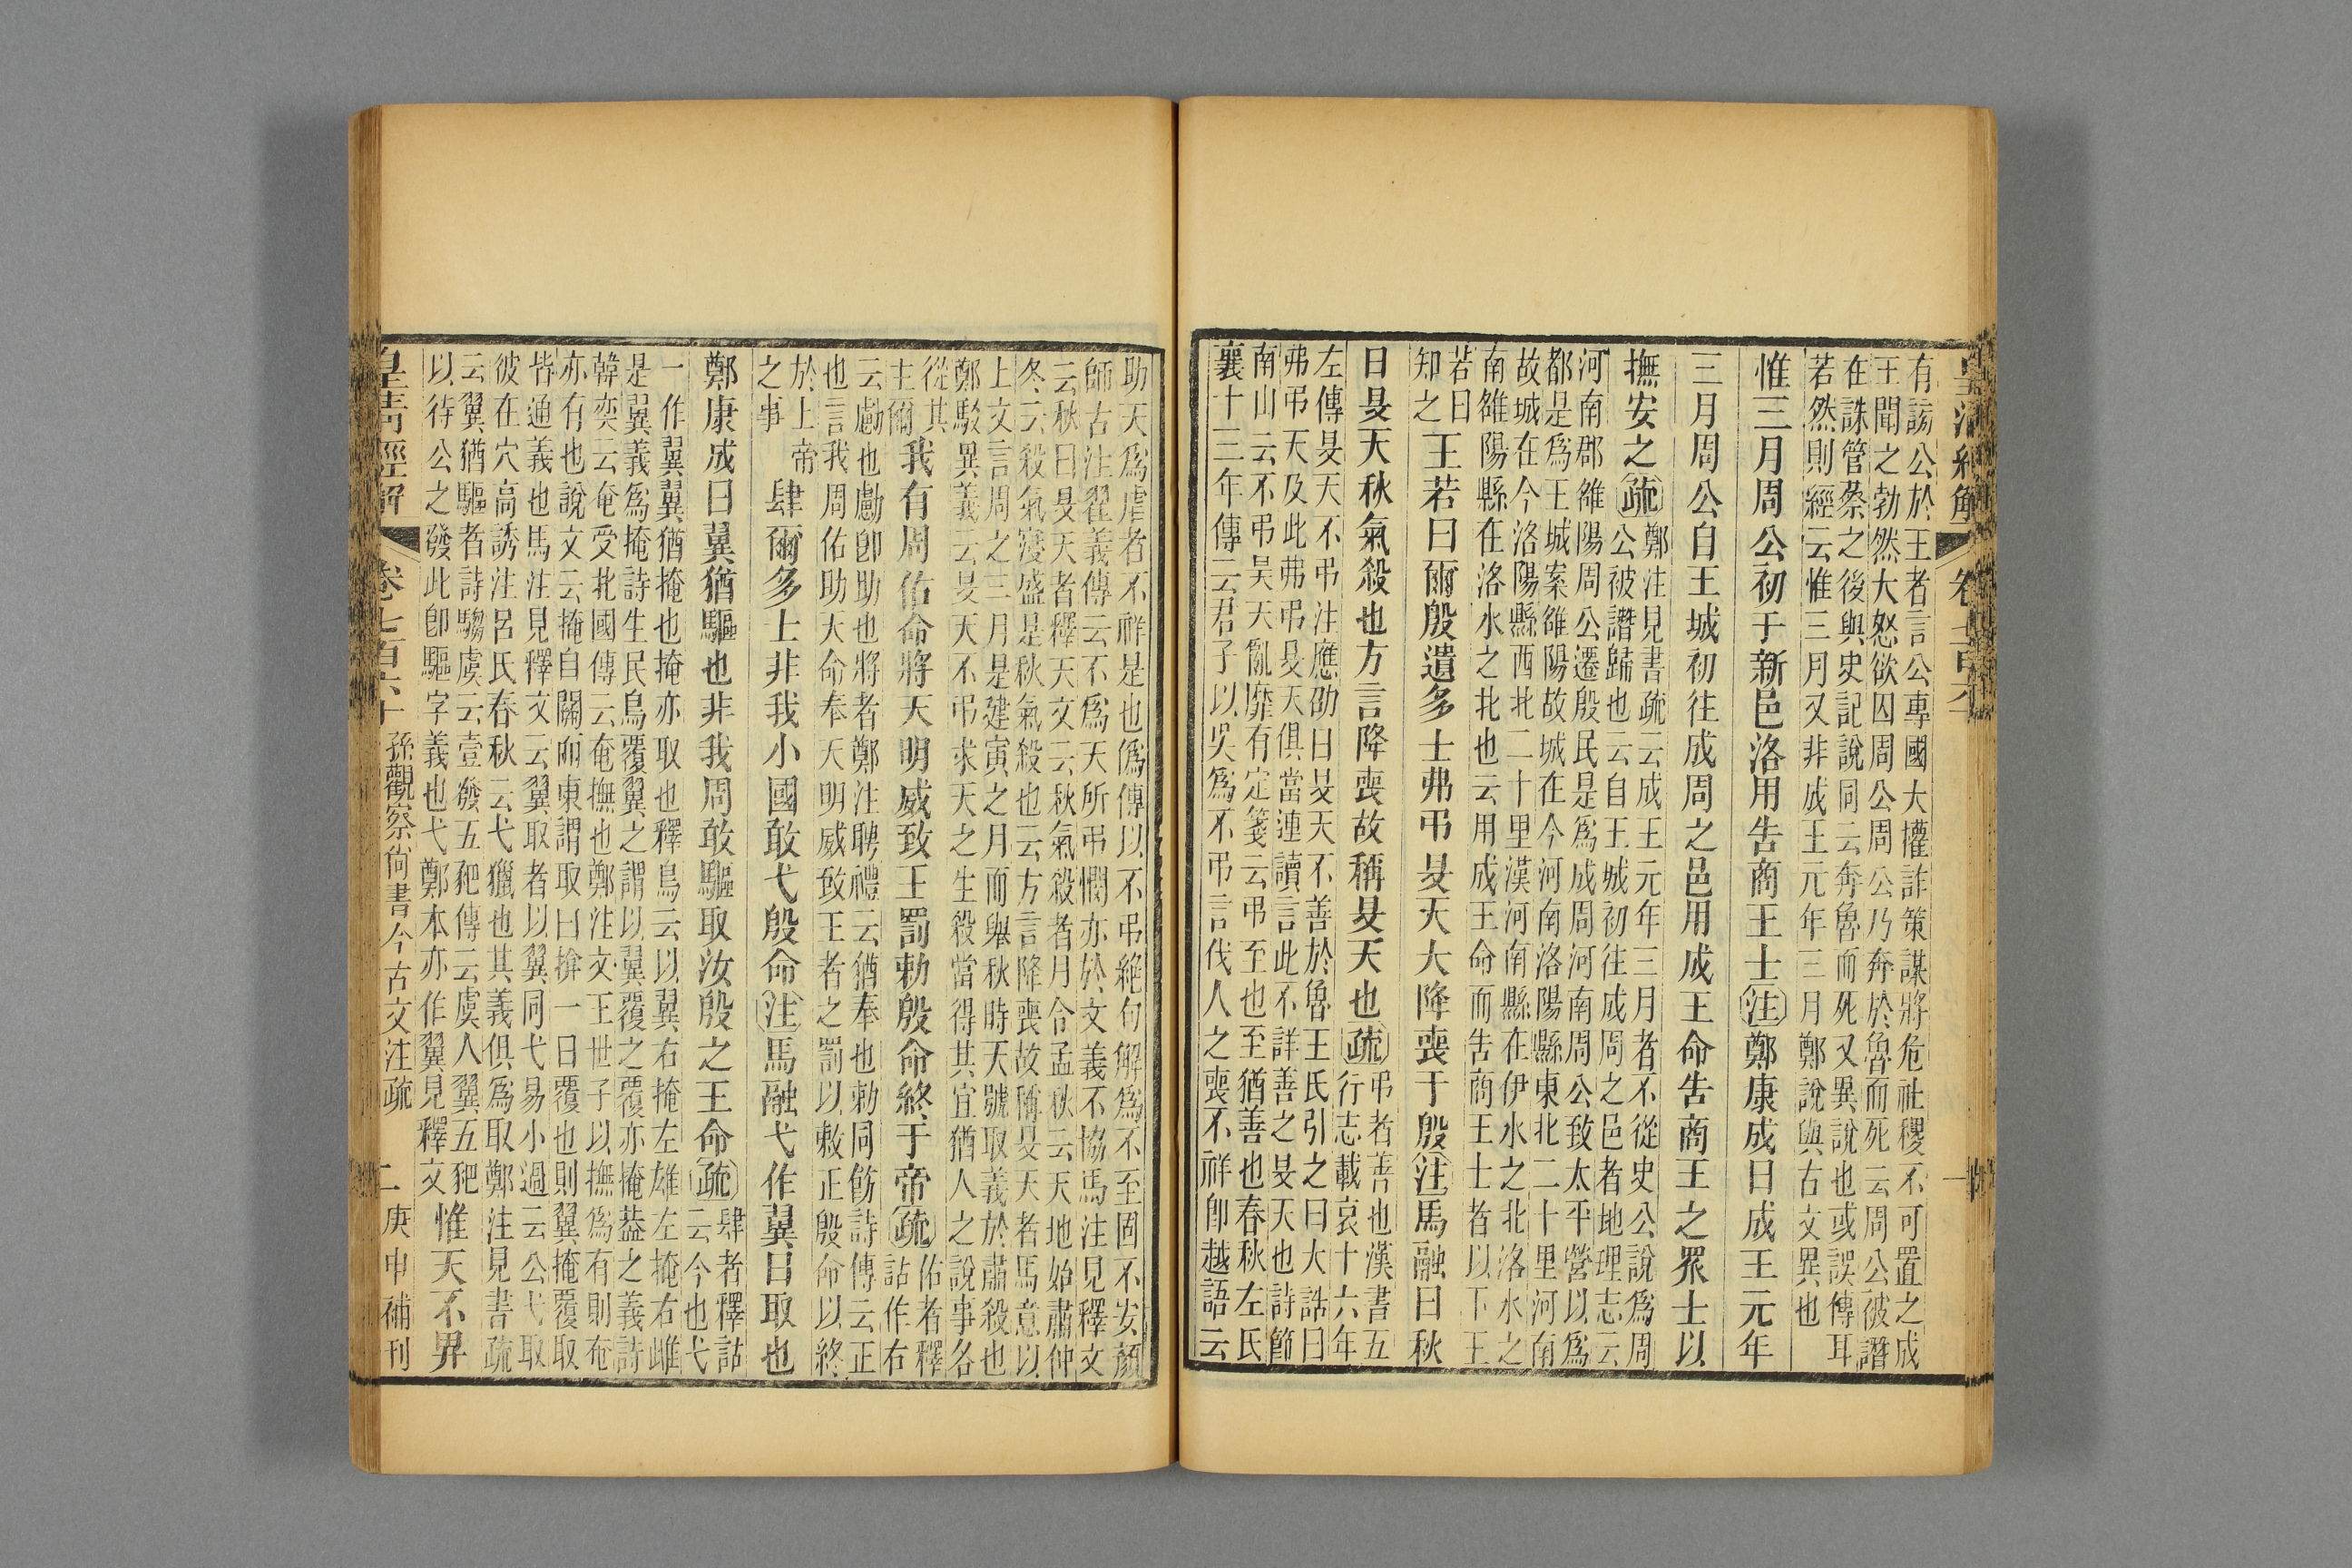 有謗公於王者言公專國大權詐策謀將危社稷不可置之成
王聞之勃然大怒欲囚周公周公乃奔於魯而死云周公被譖
在誅管蔡之後與史記說同云奔魯而死又異說也或誤傳耳
若然則經云惟三月又非成王元年三月鄭說與古文異也
惟三月周公初于新邑洛用告商王士注鄭康成曰成王元年
三月周公自王城初往成周之邑用成王命告商王之眾士以
撫安之疏
鄭注見書疏云成王元年三月者不從史公說為周
公被譖歸也云自王城初往成周之邑者地理志云
河南郡雒陽周公遷殷民是為成周河南周公致太平營以為
都是為王城案雒陽故城在今河南洛陽縣東北二十里河南
故城在今洛陽縣西北二十里漢河南縣在伊水之北洛水之
南雒陽縣在洛水之北也云用成王命而告商王士者以下王
若曰
知之
王若曰爾殷遺多士弗弔旻天大降喪于殷注馬融曰秋
曰旻天秋氣殺也方言降喪故稱旻天也疏
弔者善也漢書五
行志載哀十六年
左傳旻天不弔注應劭曰旻天不善於魯王氏引之曰大誥曰
弗弔天及此弗弔旻天俱當連讀言此不詳善之旻天也詩節
南山云不弔昊天亂靡有定箋云弔至也至猶善也春秋左氏
襄十三年傳云君子以吳為不弔言伐人之喪不祥卽越語云
助天為虐者不祥是也偽傳以不弔絕句解為不至固不安顏
師古注翟義傳云不為天所弔憫亦於文義不協馬注見釋文
云秋曰旻天者釋天文云秋氣殺者月令孟秋云天地始肅仲
冬云殺氣寖盛是秋氣殺也云方言降喪故稱旻天者馬意以
上文言周之三月是建寅之月而舉秋時天號取義於肅殺也
鄭駁異義云旻天不弔求天之生殺當得其宜猶人之說事各
從其
主爾
我有周佑命將天明威致王罰勅殷命終于帝疏
佑者釋
詁作右
云勴也勴卽助也將者鄭注聘禮云猶奉也勅同飭詩傳云正
也言我周佑助天命奉天明威致王者之罰以敕正殷命以終
於上帝
之事
肆爾多士非我小國敢弋殷命注馬融弋作翼曰取也
鄭康成曰翼猶驅也非我周敢驅取汝殷之王命疏
肆者釋詁
云今也弋
一作翼翼猶掩也掩亦取也釋鳥云以翼右掩左雄左掩右雌
是翼義為掩詩生民鳥覆翼之謂以翼覆之覆亦掩葢之義詩
韓奕云奄受北國傳云奄撫也鄭注文王世子以撫為有則奄
亦有也說文云掩自關而東謂取曰揜一曰覆也則翼掩覆取
皆通義也馬注見釋文云翼取者以翼同弋易小過云公弋取
彼在穴高誘注呂氏春秋云弋獵也其義俱為取鄭注見書疏
云翼猶驅者詩騶虞云壹發五豝傳云虞人翼五豝
以待公之發此卽驅字義也弋鄭本亦作翼見釋文
惟天不畀
皇清經解
卷七百六十
孫觀察尚書今古文注疏
二
庚申補刊